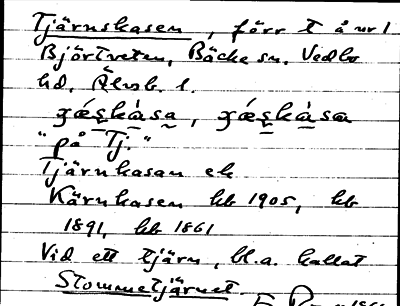 Tjärnskasen, förr t å nr 1
Björtveten, Bäcke sn. Vedbo
hd, Älvsb. l.
"på Tj."
Tjärnkasan ek
Kärnkasen kb 1905, kb
1891, kb 1861
Vid ett tjärn, bl.a. kallat
Stommetjärnet